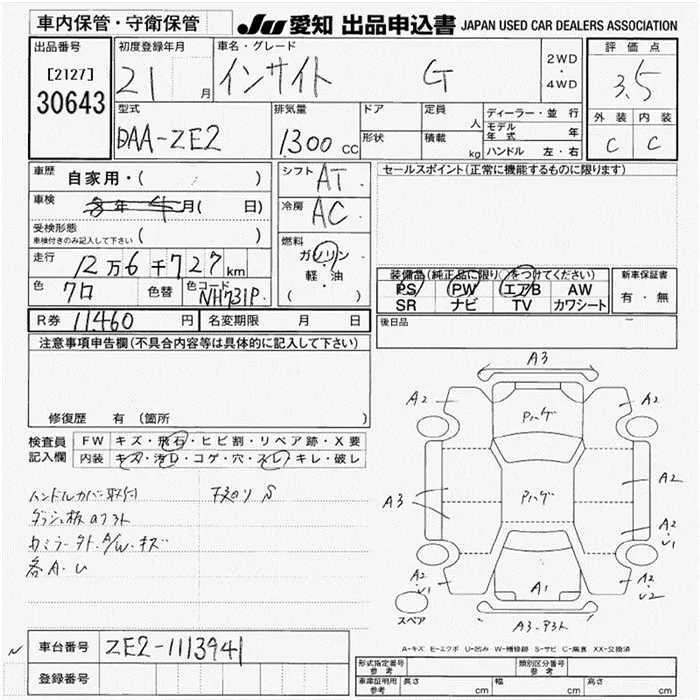 車内保管・守衛保管
JU 愛知 出品申込書 JAPAN USED CAR DEALERS ASSOCIATION
出品番号
[2127]
30643
初度登録年月
21 月
車名・グレード
インサイト G
2WD
・
4WD
評価点
3.5
外装 内装
C C
型式
DAA-ZE2
排気量
1300 CC
ドア
形状
定員 人
積載 kg
ディーラー・並行
モデル年式 年
ハンドル 左・右
車歴 自家用・( )
車検 年 月( 日)
受検形態
車検付きのみ記入して下さい ( )
走行 12万6千727km
色 クロ 色替 色コード NH731P
シフト AT
冷房 AC
燃料
ガソリン
・
軽・油
( )
セールスポイント(正常に機能するものに限ります)
装備品(純正品に限り○をつけてください)
PS PW エアB AW
SR ナビ TV カワシート
新車保証書
有・無
後日品
R券 11,460 円 名変期限 月 日
注意事項申告欄(不具合内容等は具体的に記入して下さい)
修復歴 有 (箇所 )
検査員記入欄
FW キズ・飛石・ヒビ割・リペア跡・X要
内装 キズ・汚れ・コゲ・穴・スレ・キレ・破レ
ハンドルカバー取付 下廻りS
ダッシュ板
カミラー外.A/W.キズ
各A.U
A3
A2 A2
A3 A2
A2
U1
A2
U1
A2
U2
A1
スペア
A-キズ E-エクボ U-凹み W-補修跡 S-サビ C-腐食 XX-交換済
車台番号 ZE2-1113941
登録番号
形式指定番号 参考
類別区分番号 参考
車庫証明用 参考 長さ cm 幅 cm 高さ cm